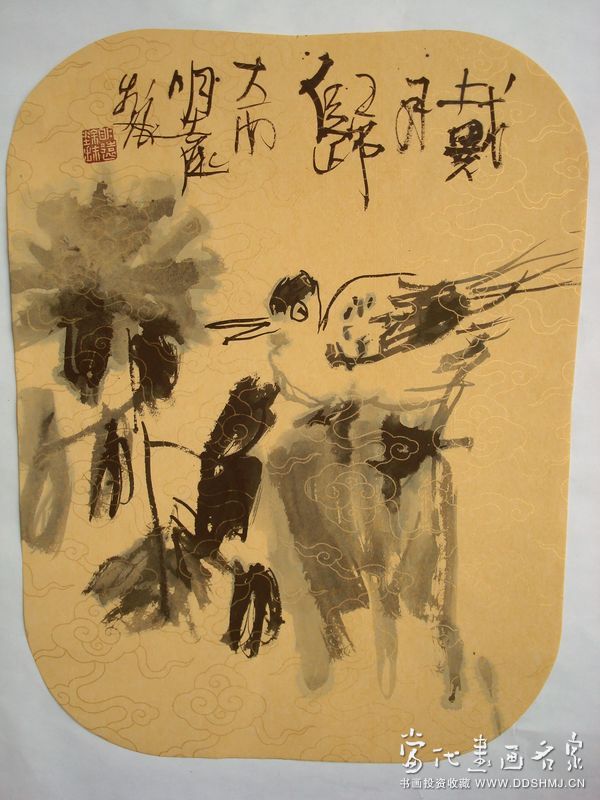 戴月歸
明遠
当代書画名家
书画投资收藏 WWW.DDSHMJ.CN